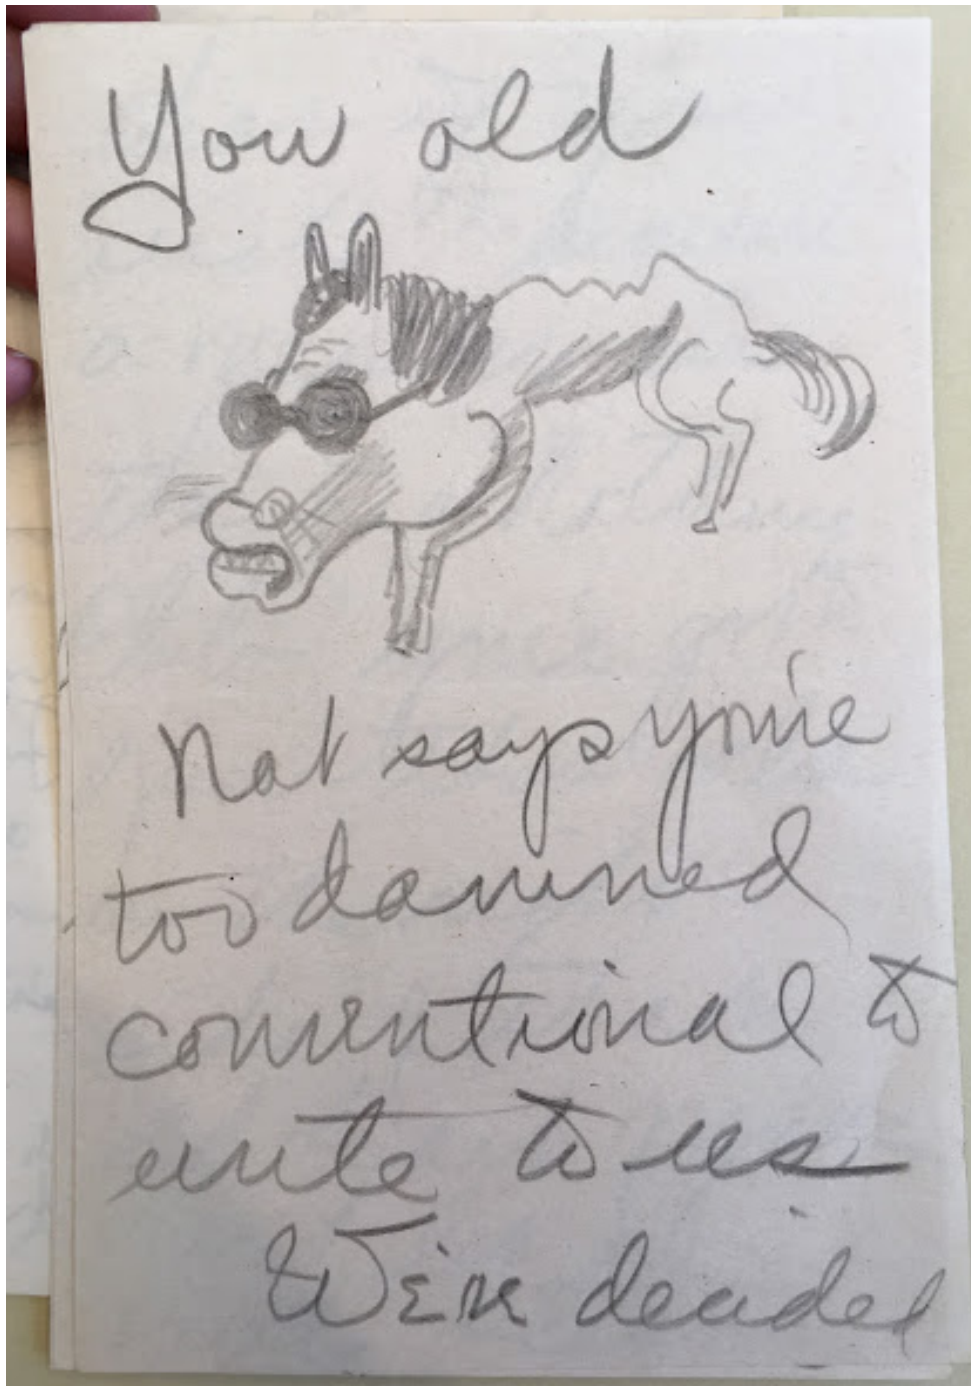 You old
Nat says you're
too damned
conventional to
write to us
We've decided